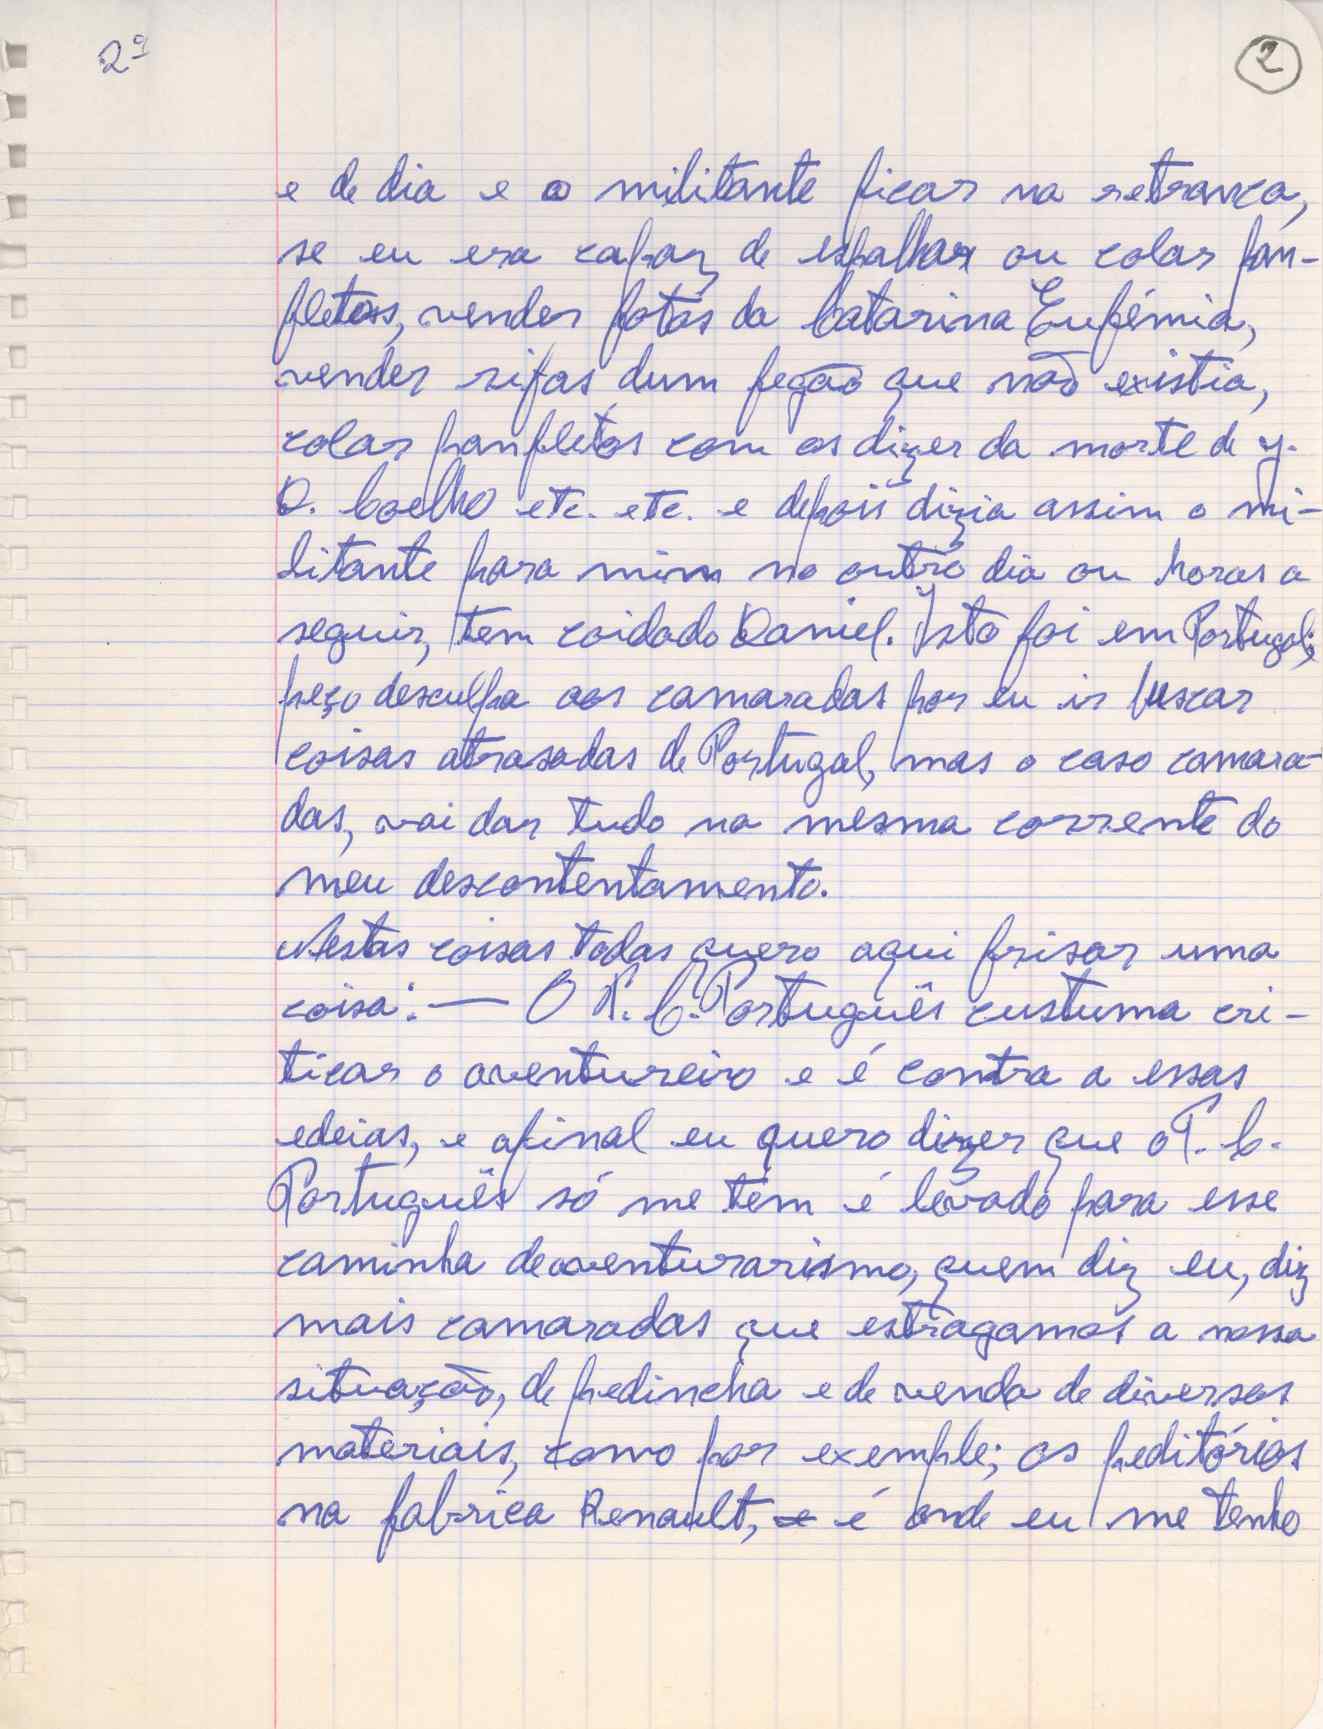 2º
2
e de dia e o militante ficar na retranca,
se eu era capaz de espalhar ou colar pan-
fletos, vender fotos da Catarina Eufémia,
vender rifas dum fegão que não existia,
colar panfletos com os dizer da morte de J.
D. Coelho etc. etc. e depois dizia assim o mi-
litante para mim no outro dia ou horas a
seguir, tem coidado Daniel. Isto foi em Portugal;
peço desculpa aos camaradas por eu ir buscar
coisas atrasadas de Portugal, mas o caso camara-
das, vai dar tudo na mesma corrente do
meu descontentamento.
Nestas coisas todas quero aqui frisar uma
coisa: — O P. C. Português custuma cri-
ticar o aventureiro e é contra a essas
edeias, e afinal eu quero dizer que o P. C.
Português só me têm é levado para esse
caminha de aventurarismo, quem diz eu, diz
mais camaradas que estragamos a nossa
situação, de pedincha e de venda de diversos
materiais, como por exemple; os peditórios
na fabrica Renault, e é onde eu me tenho